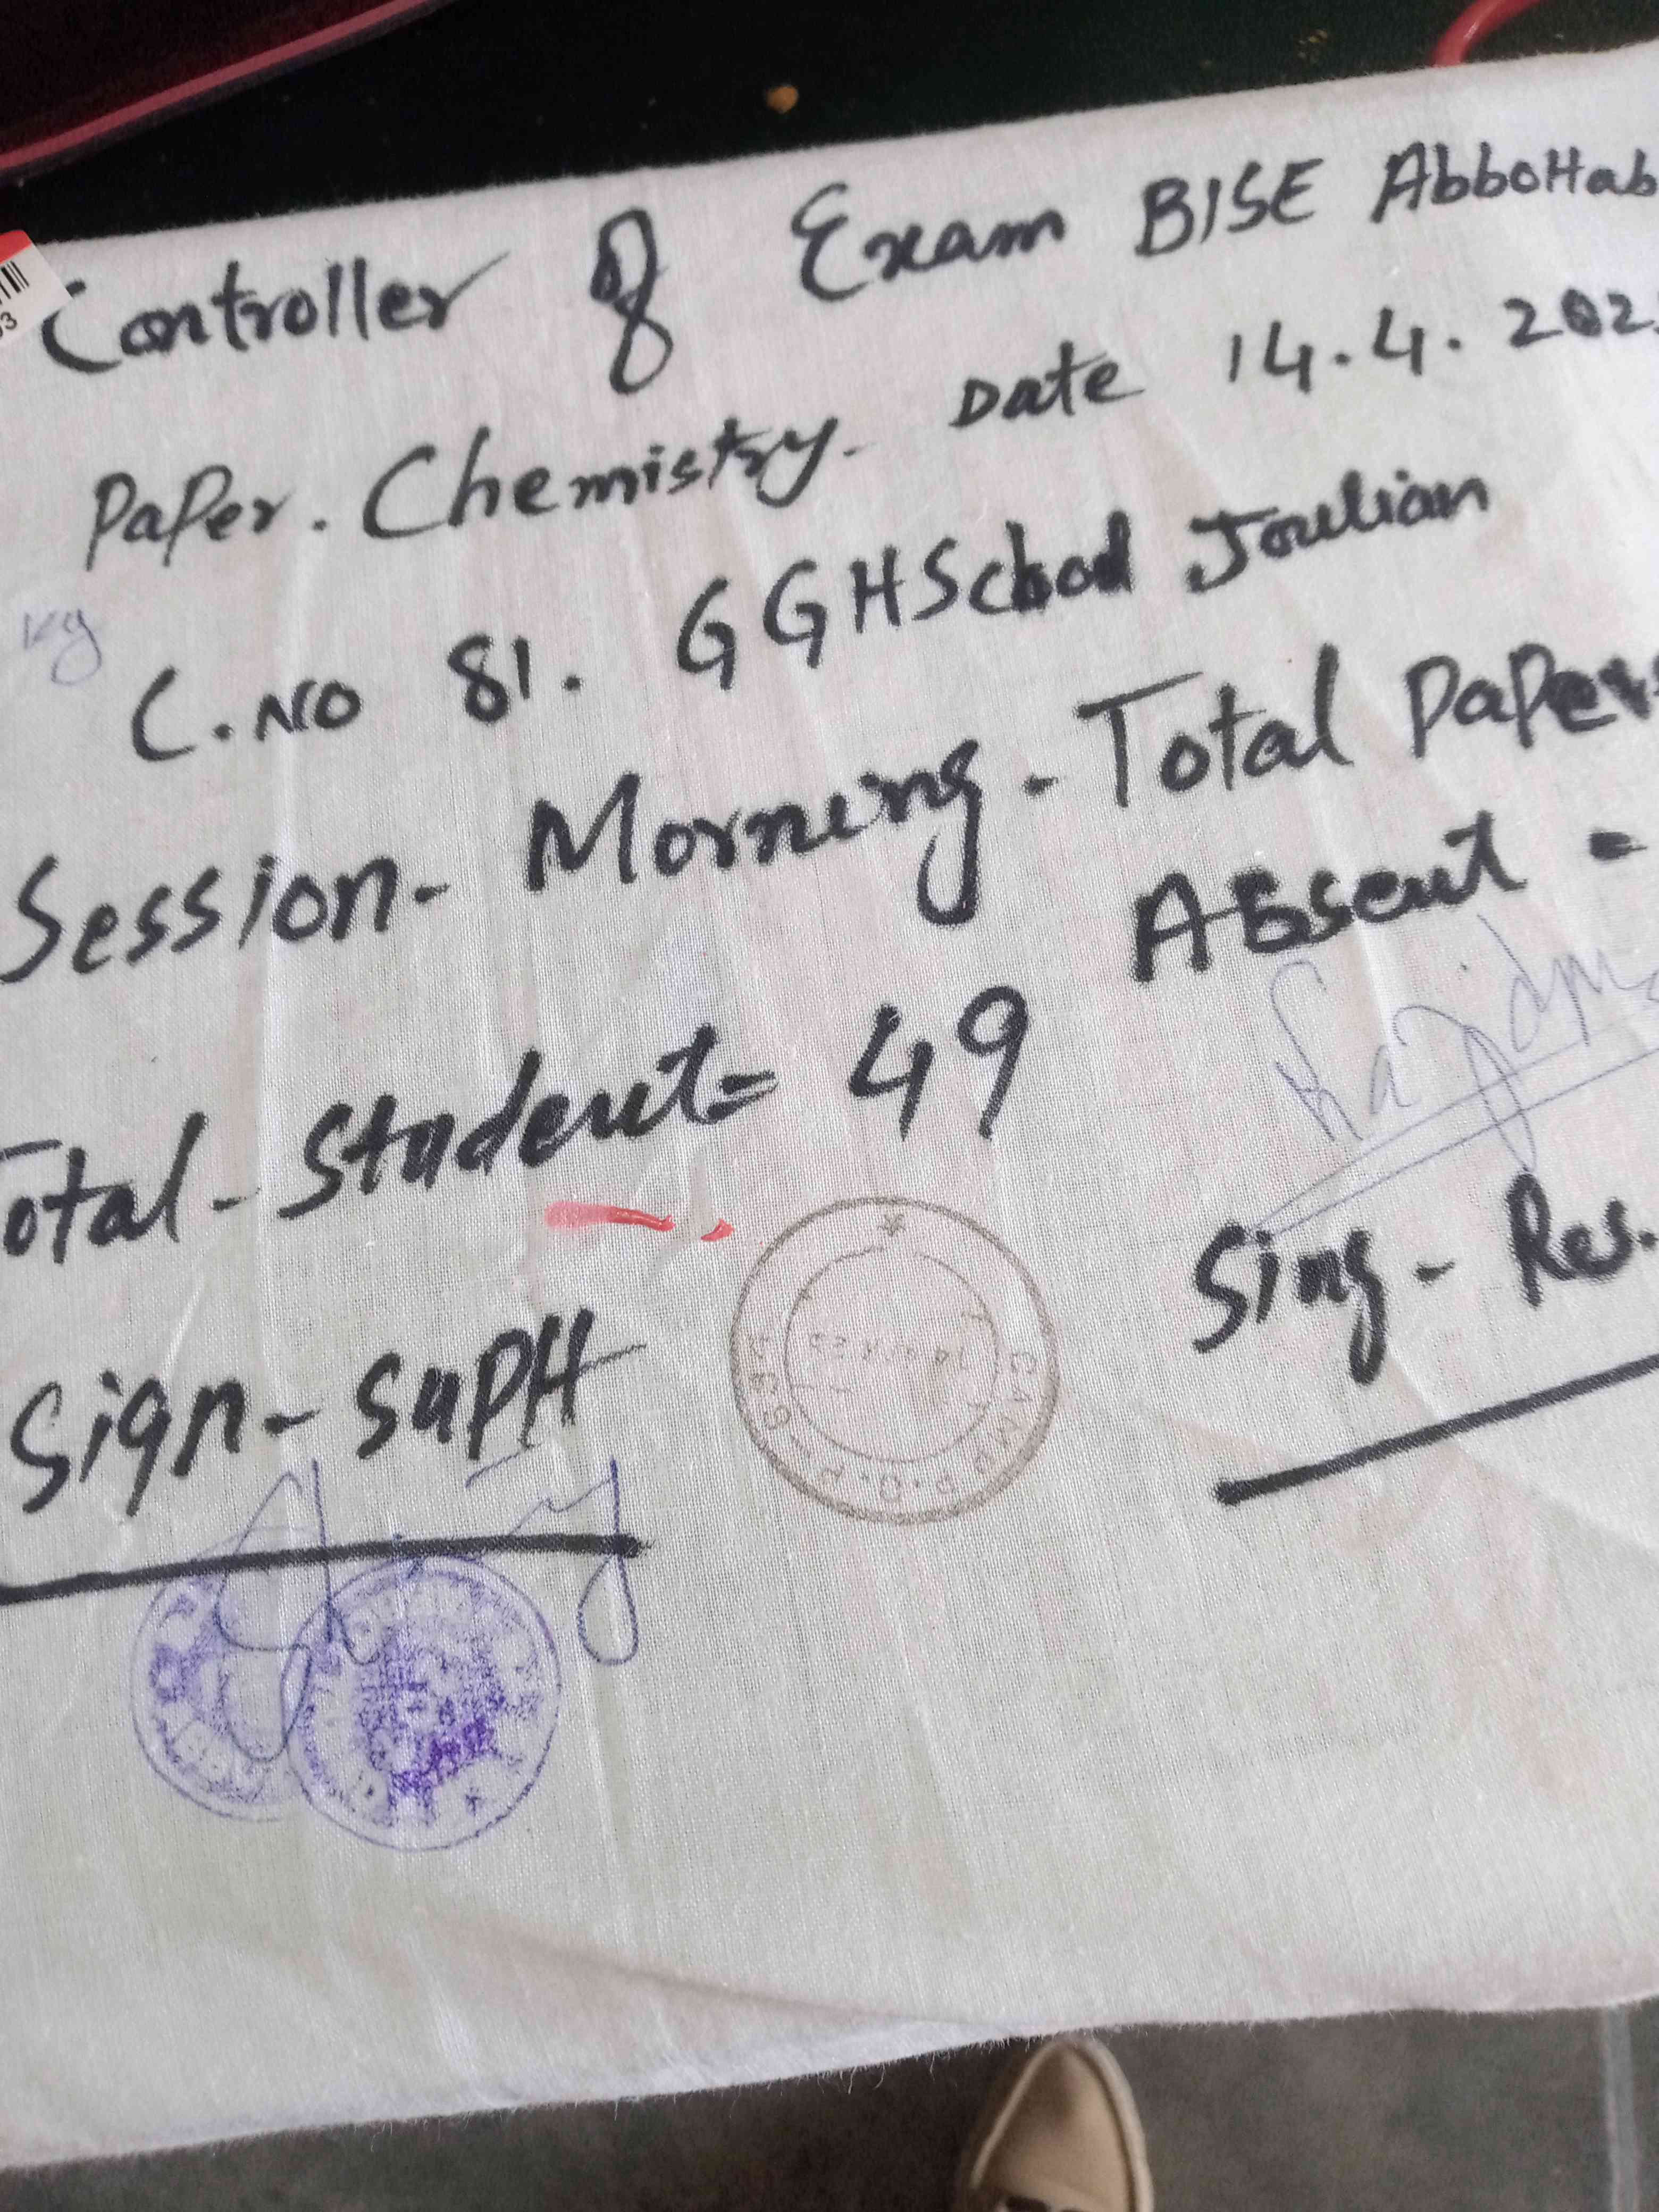 Controller of Exam BISE Abbottab
Paper. Chemistry. Date 14.4.202
C.No 81. GGHSchool Joulian
Session- Morning - Total Papers
Absent =
Total - Student = 49
Sign - SuPH
Sing - Res.